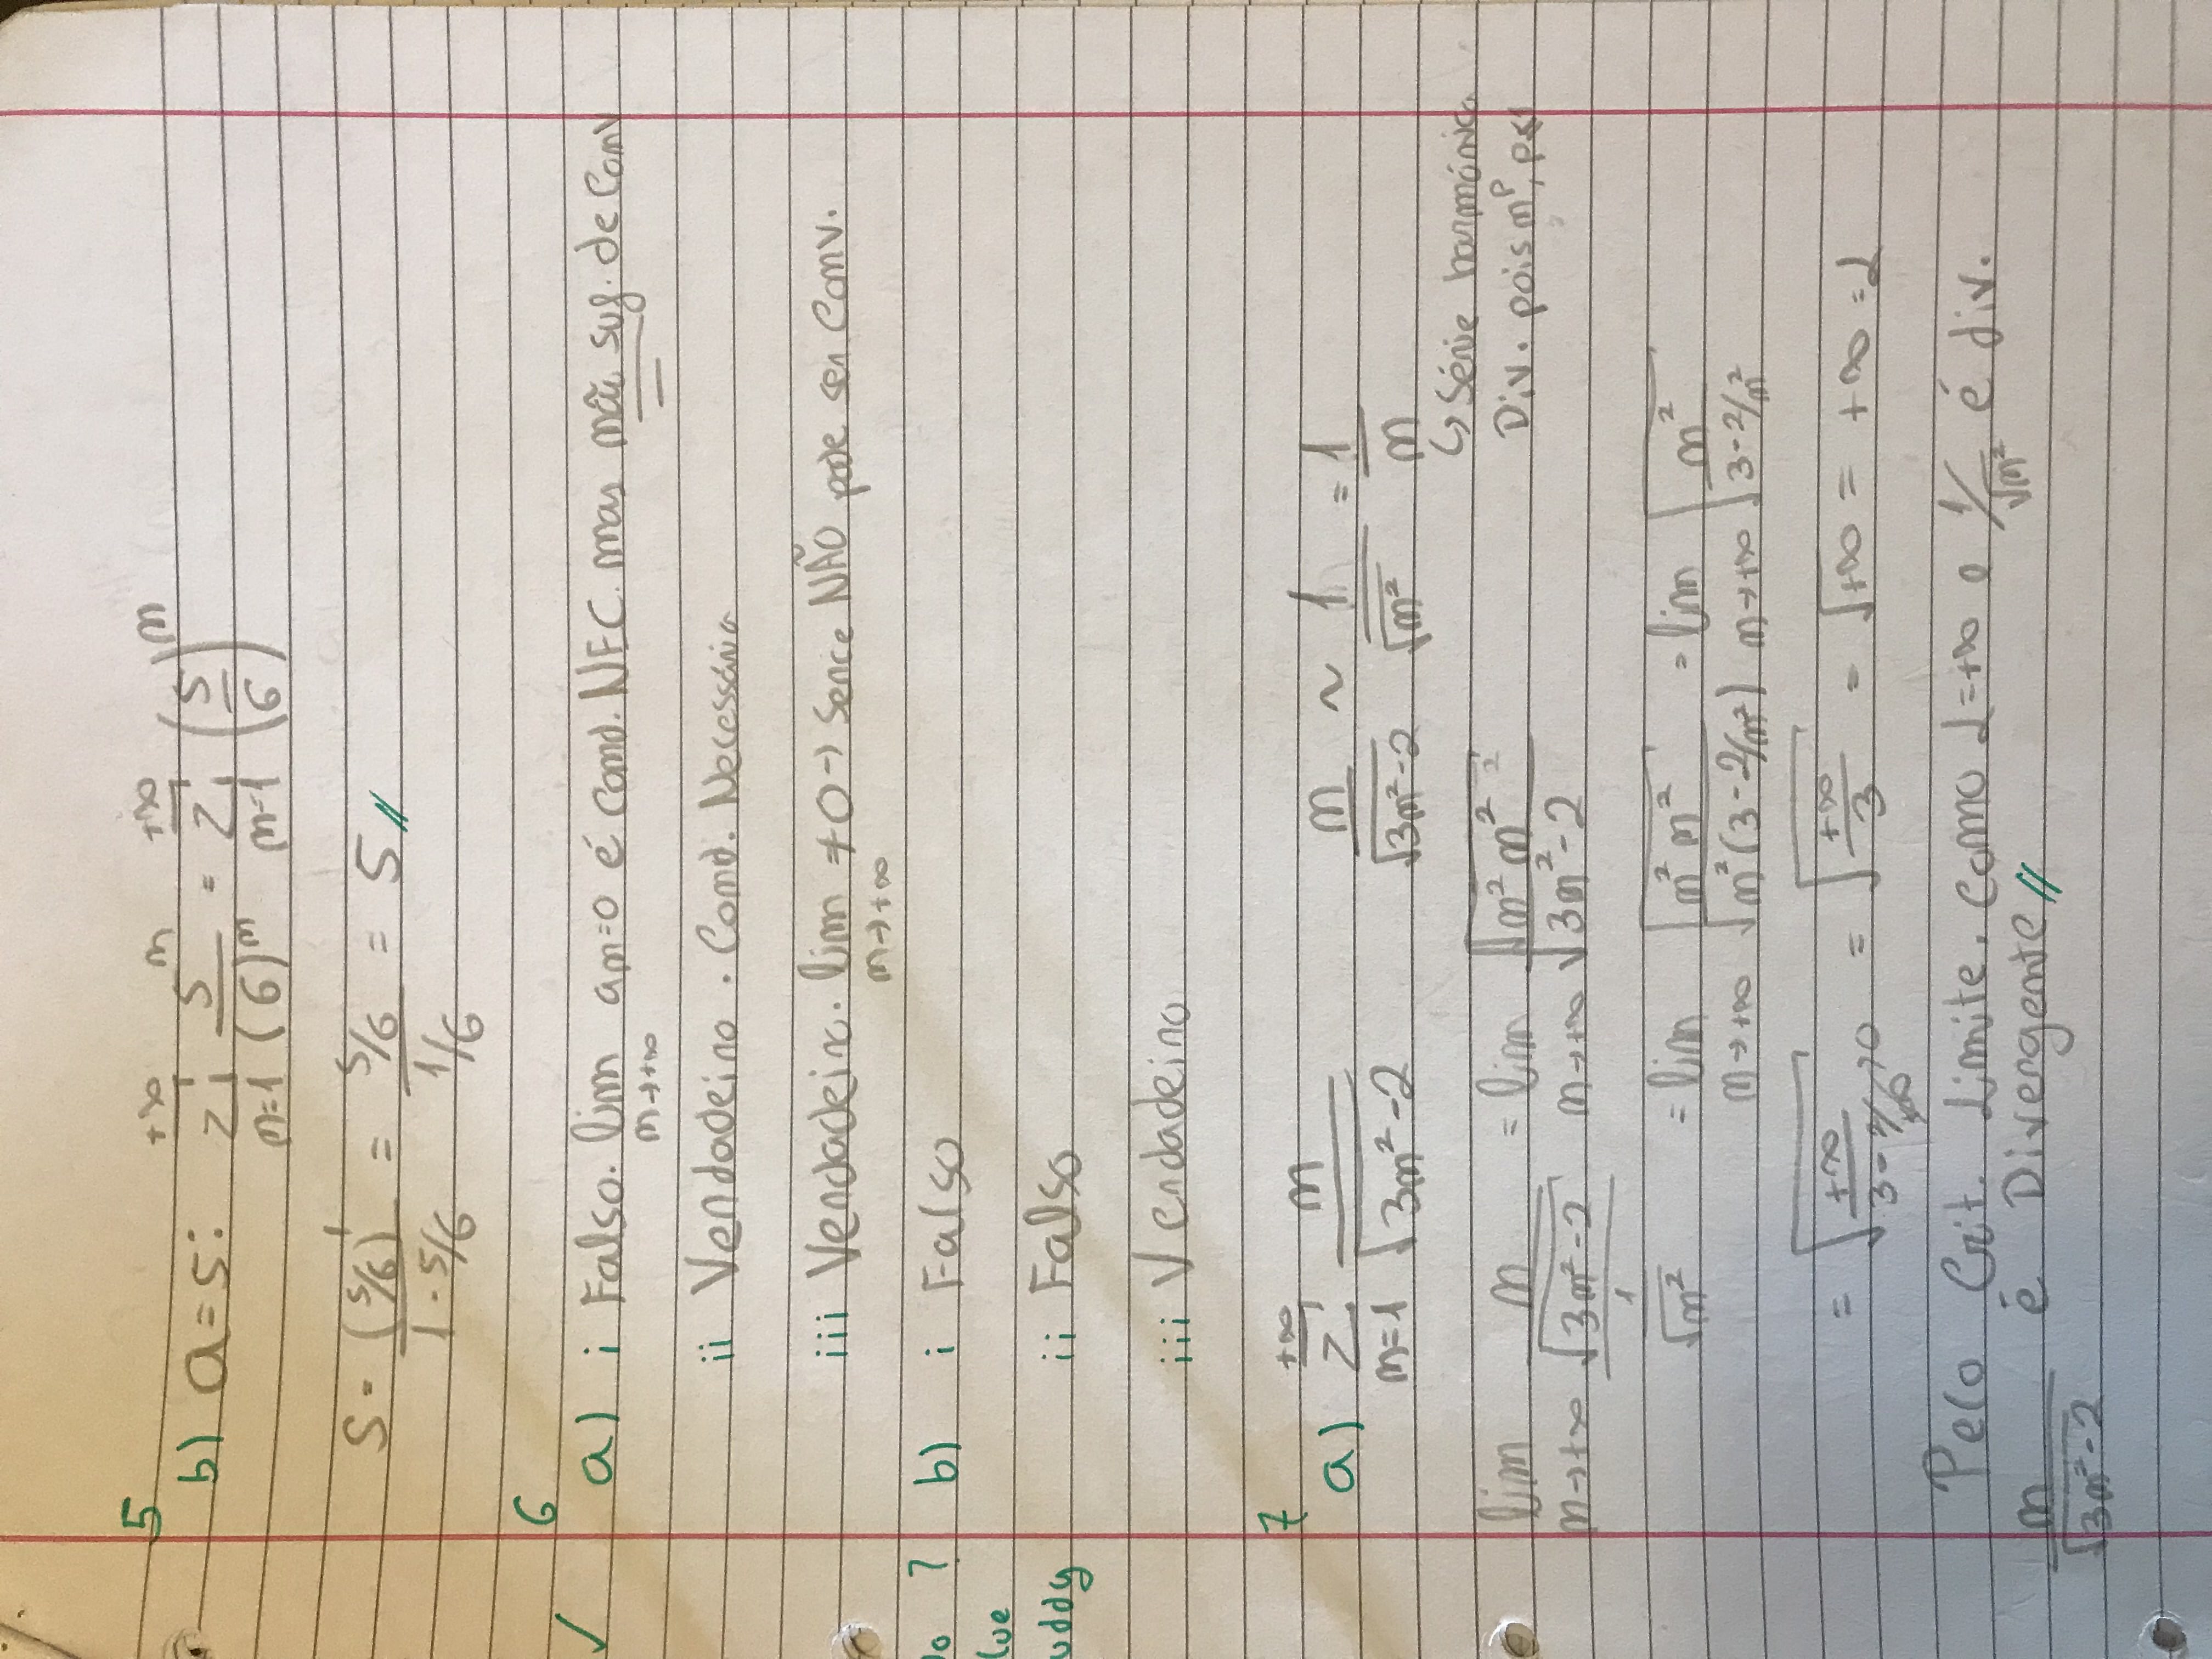 5
b) a=5: +∞ Σ n=1 5^n/(6)^n = +∞ Σ n=1 (5/6)^n
S = (5/6)^1/(1-5/6) = (5/6)/(1/6) = 5 //
6
✓ a) i Falso. lim n→+∞ an=0 é Cond. NEC. mas não suf. de Conv
ii Verdadeiro. Cond. Necessária
iii Verdadeiro. lim n→+∞ ≠0 → Serie NÃO pode ser Conv.
? b) i Falso
ii Falso
iii Verdadeiro
7
a) +∞ Σ n=1 n/√(3n²-2) n/√(3n²-2) ~ 1/√n² = 1/n
↳ Série harmónica
Div. pois n^p, p≤1
lim n→+∞ (n/√(3n²-2))/(1/√n²) = lim n→+∞ √(n² n²)/√(3n²-2)
= lim n→+∞ √(n² n²)/√(n²(3-2/n²)) = lim n→+∞ √(n²/(3-2/n²))
= √(+∞/(3-2/+∞→0)) = √(+∞/3) = √+∞ = +∞ = L
Pelo Crit. Limite, como L=+∞ e 1/√n² é div.
n/√(3n²-2) é Divergente //